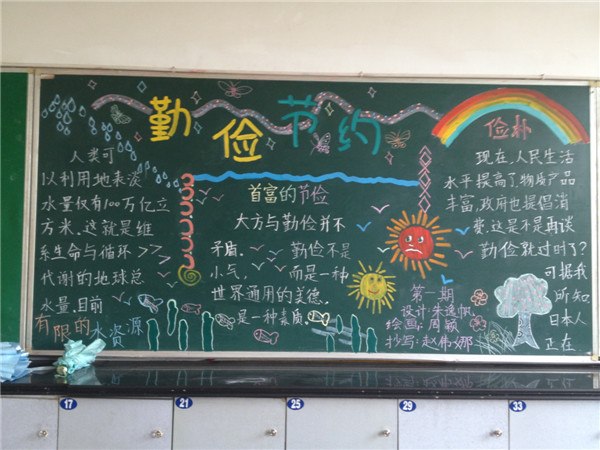 勤俭节约
人类可
以利用地表淡
水量仅有100万亿立
方米.这就是维
系生命与循环
代谢的地球总
水量.目前
有限的水资源
首富的节俭
大方与勤俭并不
矛盾.勤俭不是
小气,而是一种
世界通用的美德.
是一种素质.
第一期
绘画:周颖
俭朴
现在,人民生活
水平提高了,物质产品
丰富,政府也提倡消
费.这是不是再谈
勤俭就过时了?
可据我
所知
日本人
正在
17
21
25
29
33